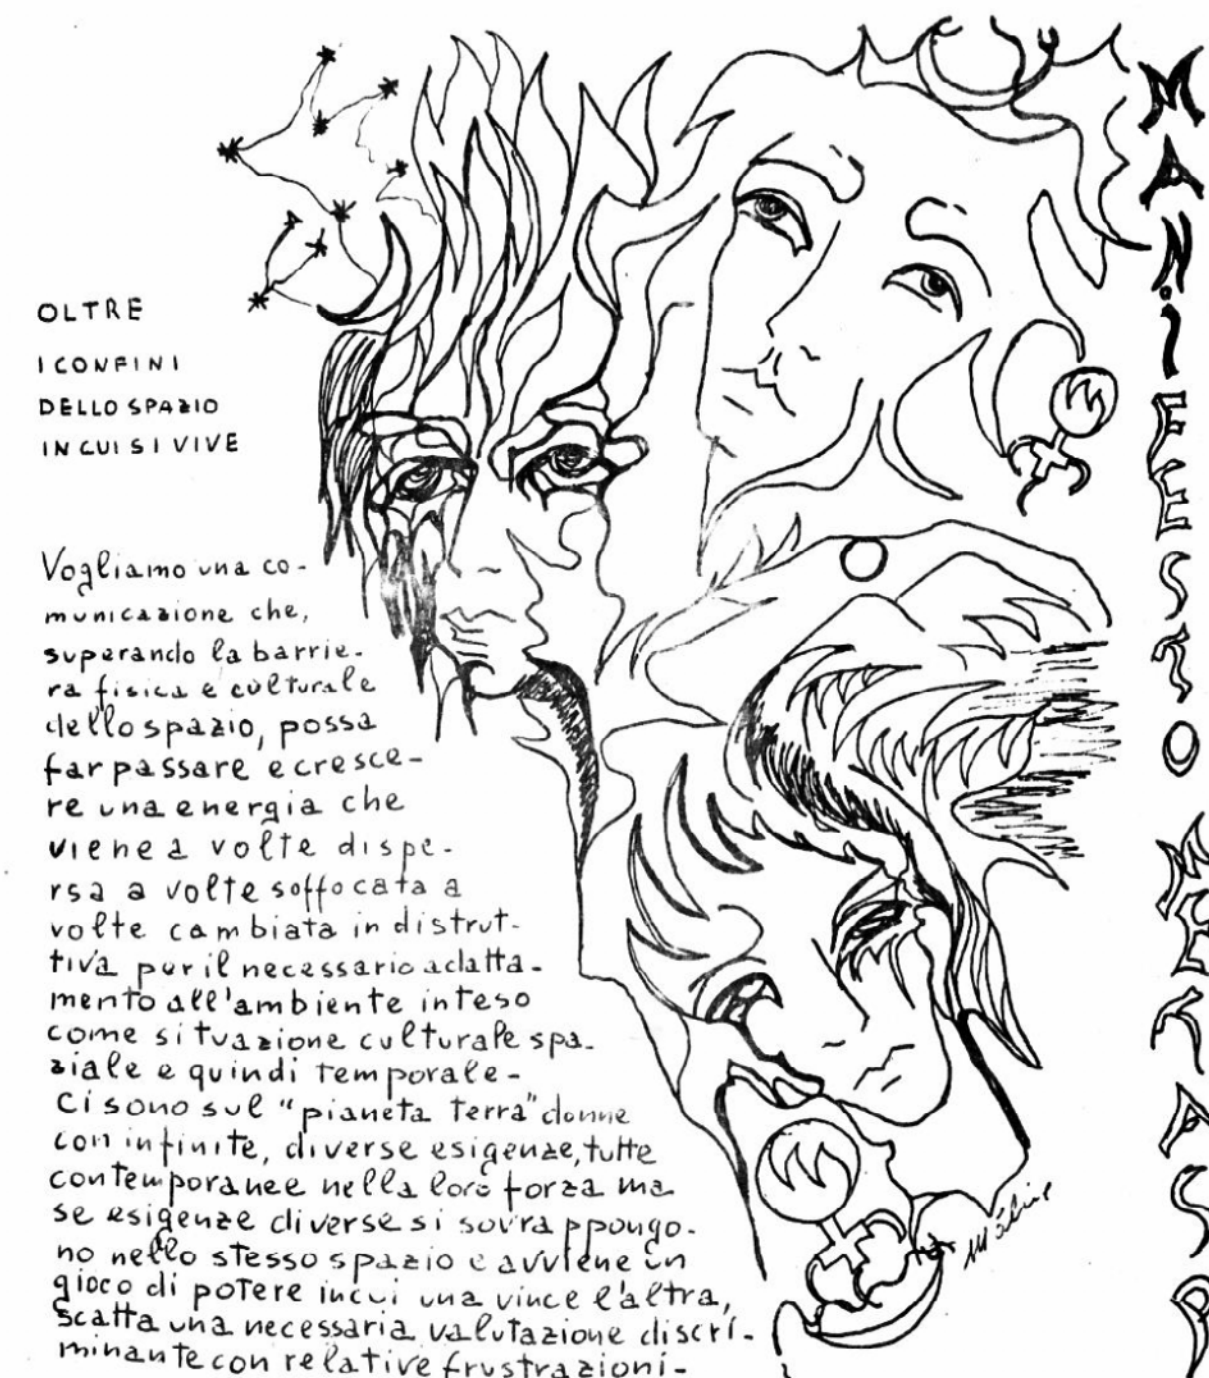 OLTRE
I CONFINI
DELLO SPAZIO
IN CUI SI VIVE
Vogliamo una co-
municazione che,
superando la barrie-
ra fisica e culturale
dello spazio, possa
far passare e cresce-
re una energia che
viene a volte dispe-
rsa a volte soffocata a
volte cambiata in distrut-
tiva per il necessario adatta-
mento all'ambiente inteso
come situazione culturale spa-
ziale e quindi temporale-
Ci sono sul "pianeta terra" donne
con infinite, diverse esigenze, tutte
contemporanee nella loro forza ma
se esigenze diverse si sovrappongo-
no nello stesso spazio e avviene un
gioco di potere in cui una vince l'altra,
scatta una necessaria valutazione discri-
minante con relative frustrazioni-
MANIFESTO METASP